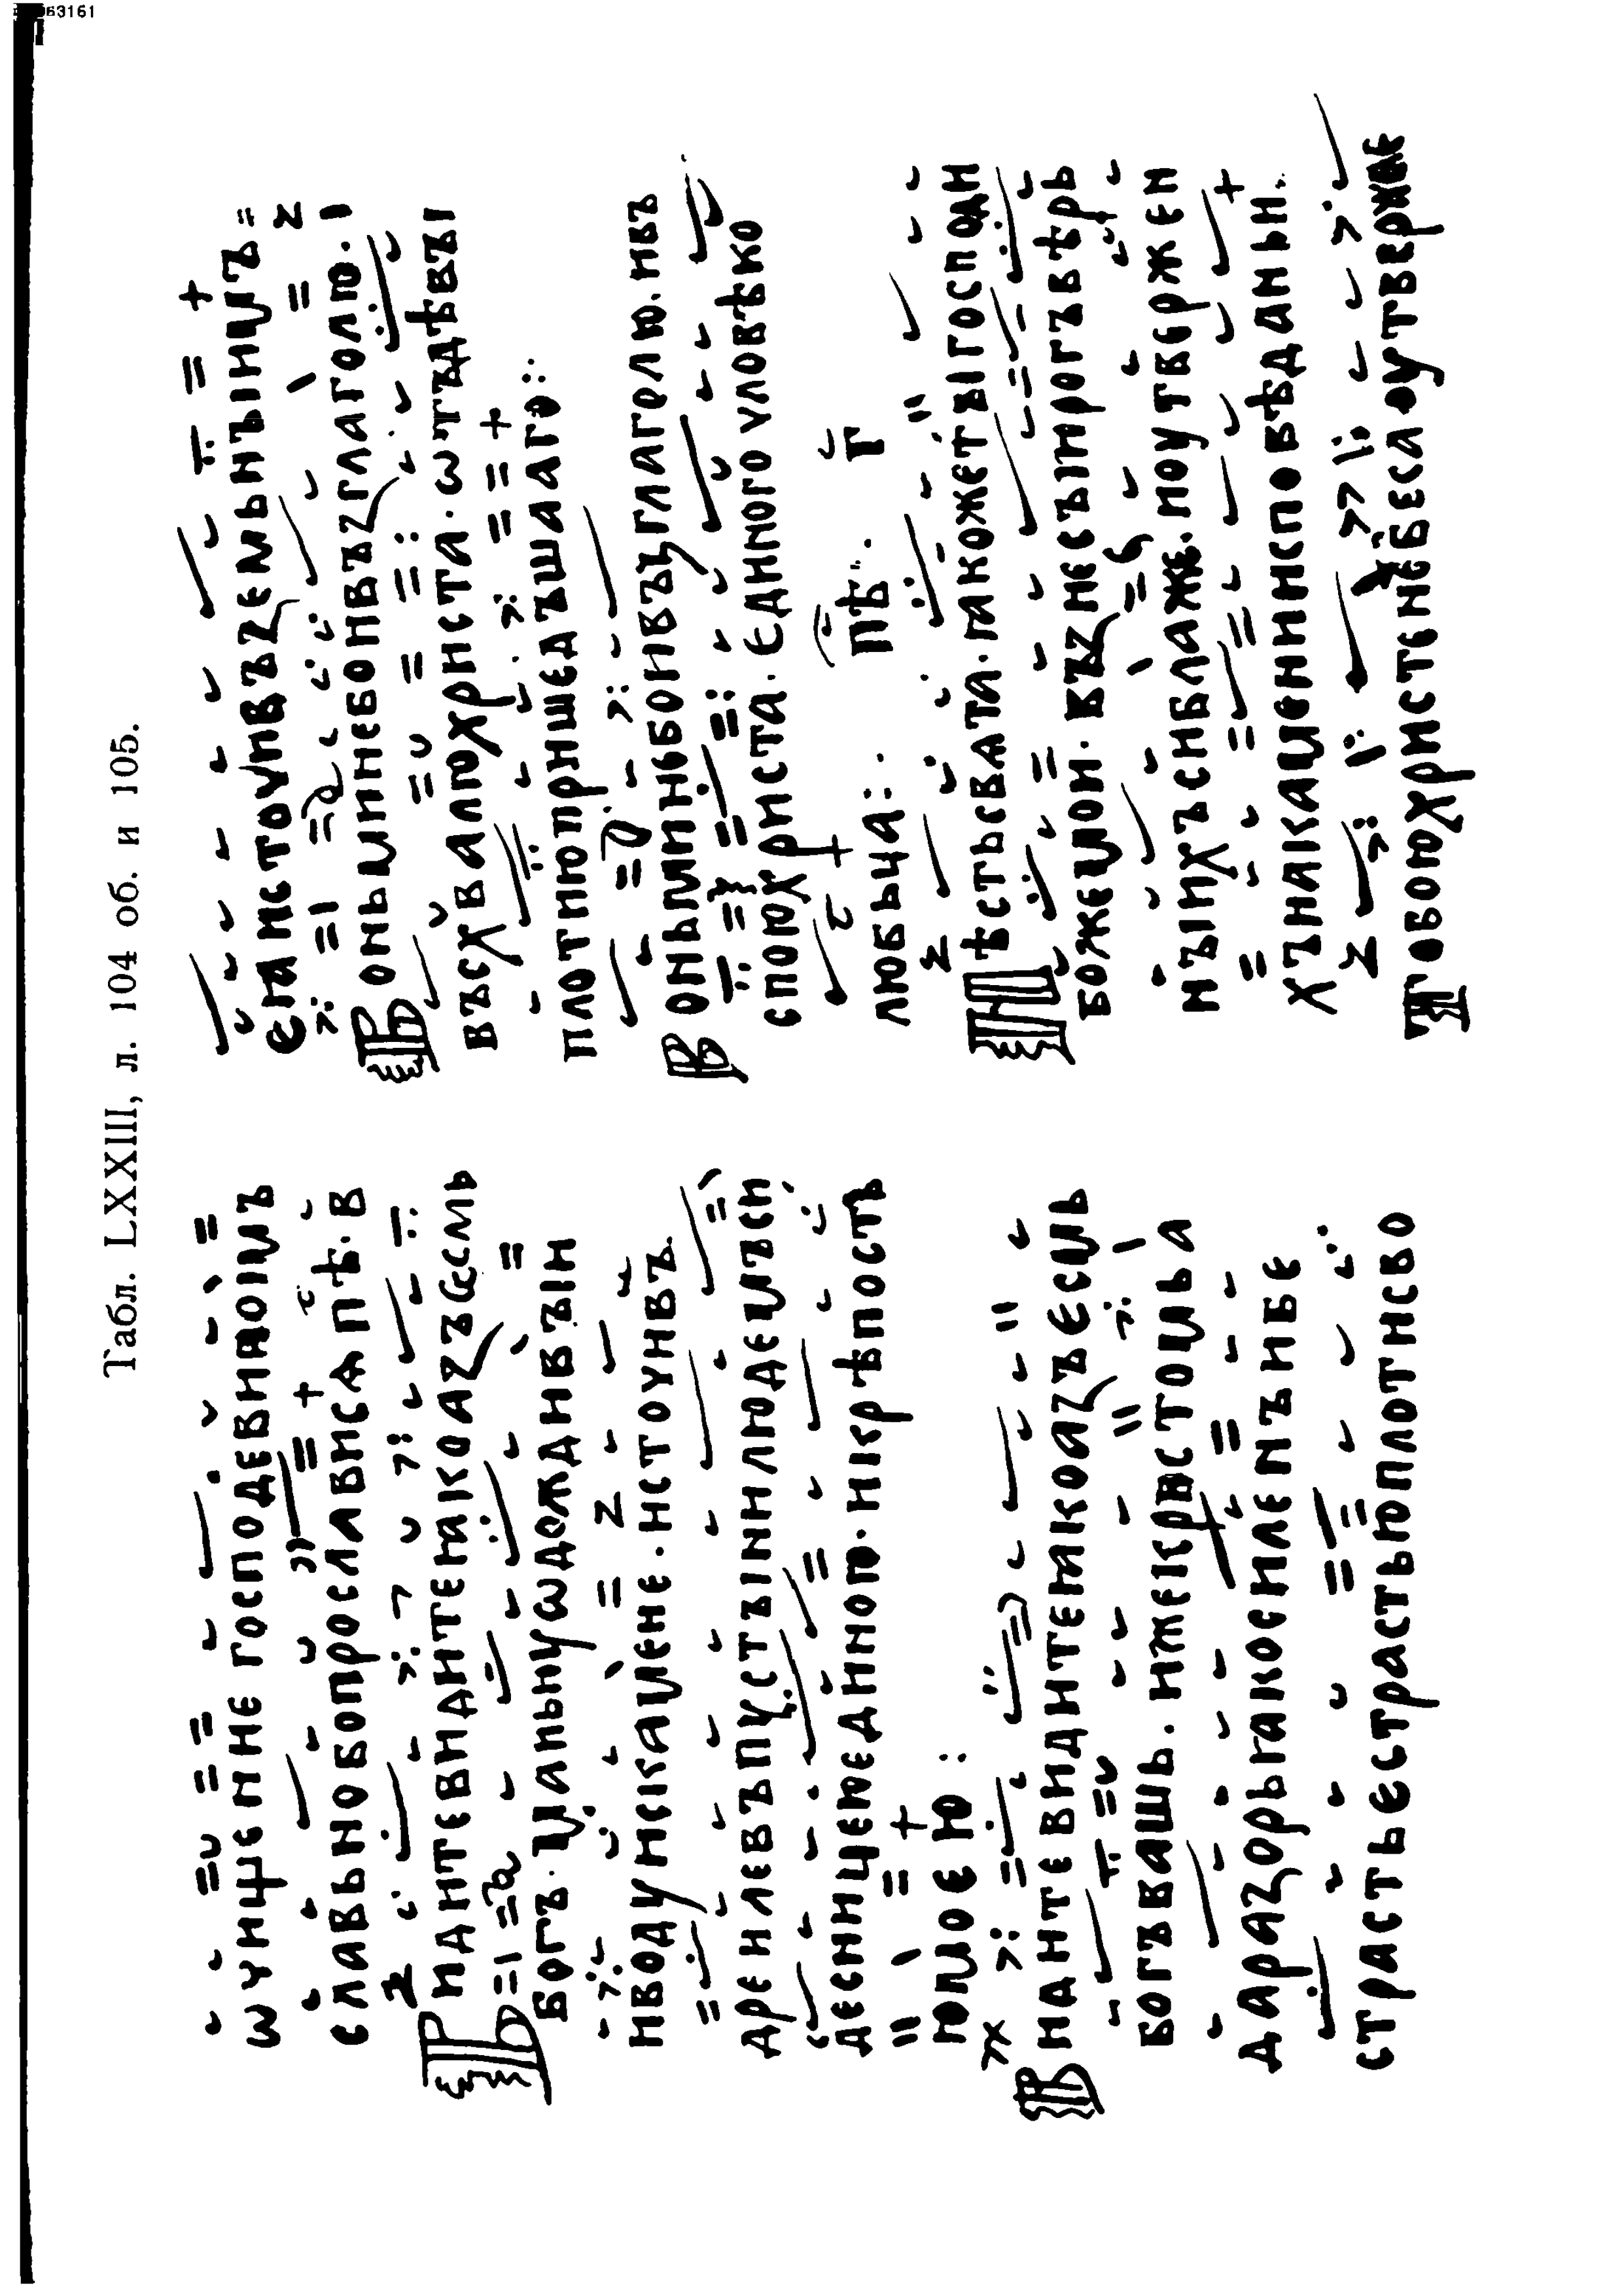 Табл. LXXIII, л. 104 об. и 105.
ѡчищение господевиꙗкоимъ
славьнобопрославися пѣ· в
Видитевидитеꙗкоазъесмь
богъ· маньнуѡдождивъи
иводуискамене·источивъ
древлевъпустыиилюдемъси
десницеюединою·икрѣпость
юмоею :
Видитевидитеꙗкоазъесмь
богъвашь. ижекрьстомьа
даразорьꙗкосилепъинбе
страстьестрастьюплотисво
еꙗисточивъземьныимъ=
Воньминебоивъзглаголю. ı
въсхвалюхриста·ѡтъдѣвы
плотиюпришедъшааго::
Воньминебоивъзглаголю. ивъ
спою христа· единогочловѣко
любьца::. пѣ::. г
Нѣстьсвята·ꙗкожетыгосподи
божемои· възнесыирогъвѣрь
ныихъсиблаже. иоутвержен
хънакаменииисповѣдании::
Тобоюхристенебесаоутверже